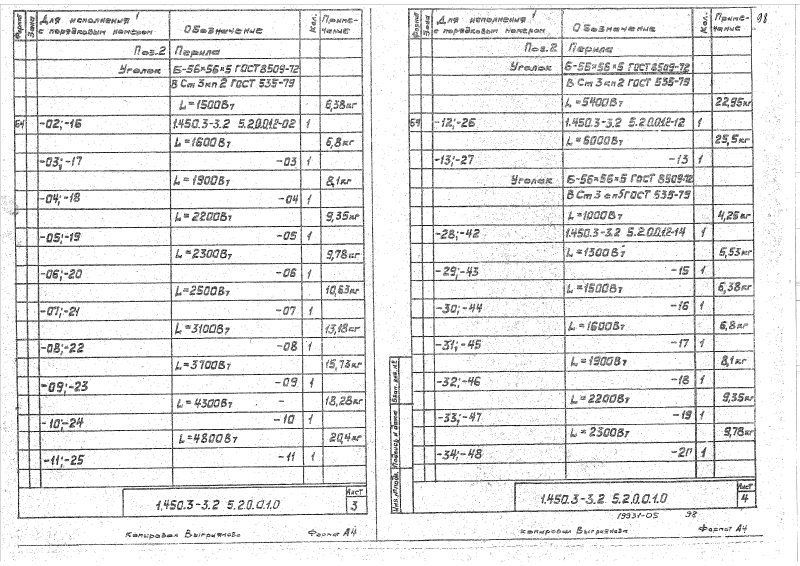 Формат Зона Для исполнения с порядковым номером Обозначение Кол. Примечание
Поз.2 Перила
Уголок Б-56×56×5 ГОСТ 8509-72
В Ст 3 кп 2 ГОСТ 535-79
L=1500Вт 6,38кг
БЧ -02;-16 1.450.3-3.2 5.2.0.0.1.2-02 1
L=1600Вт 6,8кг
-03;-17 -03 1
L=1900Вт 8,1кг
-04;-18 -04 1
L=2200Вт 9,35кг
-05;-19 -05 1
L=2300Вт 9,78кг
-06;-20 -06 1
L=2500Вт 10,63кг
-07;-21 -07 1
L=3100Вт 13,18кг
-08;-22 -08 1
L=3700Вт 15,73кг
-09;-23 -09 1
L=4300Вт - 18,28кг
-10;-24 -10 1
L=4800Вт 20,4кг
-11;-25 -11 1
1.450.3-3.2 5.2.0.0.1.0 Лист 3
Копировал Выгриянова Формат А4
98
Формат Зона Для исполнения с порядковым номером Обозначение Кол. Примечание
Поз.2 Перила
Уголок Б-56×56×5 ГОСТ 8509-72
В Ст 3 кп 2 ГОСТ 535-79
L=5400Вт 22,95кг
БЧ -12;-26 1.450.3-3.2 5.2.0.0.1.2-12 1
L=6000Вт 25,5кг
-13;-27 -13 1
Уголок Б-56×56×5 ГОСТ 8509-72
В Ст 3 сп5 ГОСТ 535-79
L=1000Вт 4,25кг
-28;-42 1.450.3-3.2 5.2.0.0.1.2-14 1
L=1300Вт 5,53кг
-29;-43 -15 1
L=1500Вт 6,38кг
-30;-44 -16 1
L=1600Вт 6,8кг
-31;-45 -17 1
L=1900Вт 8,1кг
-32;-46 -18 1
L=2200Вт 9,35кг
-33;-47 -19 1
L=2300Вт 9,78кг
-34;-48 -20 1
Инв.№подл. Подпись и дата Взам. инв.№
1.450.3-3.2 5.2.0.0.1.0 Лист 4
19931-05 98
Копировал Выгриянова Формат А4